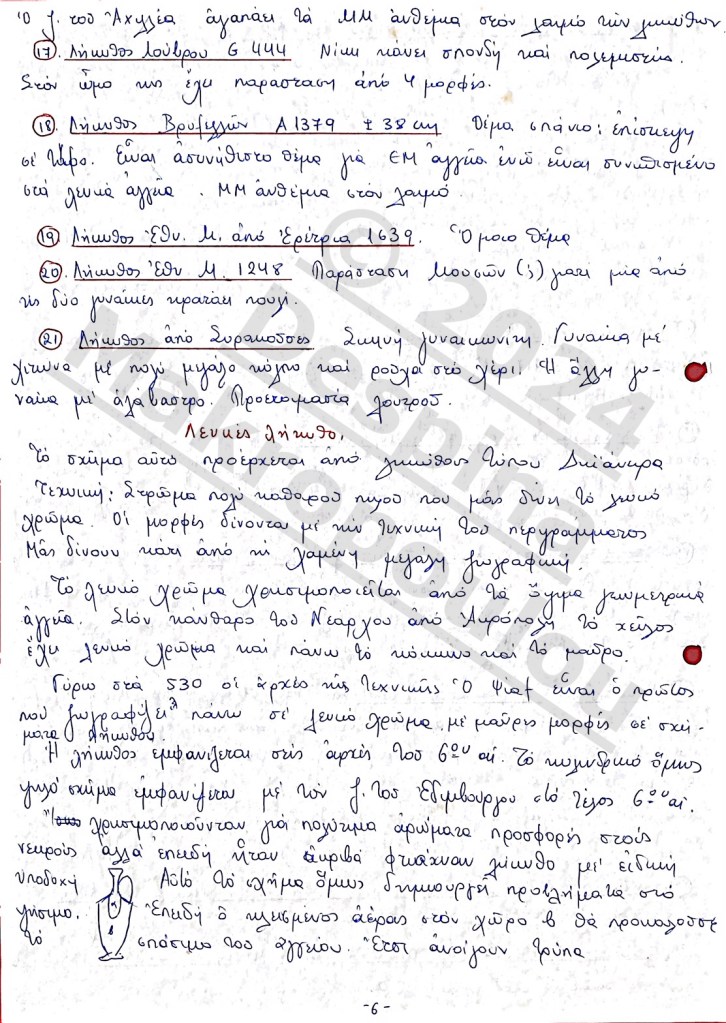 Ὁ ζ. τοῦ Ἀχιλλέα ἀγαπάει τά ΜΜ ἀνθέμια στόν λαιμό τῶν ληκύθων.
17. Λήκυθος Λούβρου G 444 Νίκη κάνει σπονδή καί πολεμιστής.
Στόν ὦμο της ἔχει παράσταση ἀπό 4 μορφές.
18. Λήκυθος Βρυξελλῶν Α 1379 ± 38 cm Θέμα σπάνιο: ἐπίσκεψη
σέ τάφο. Εἶναι ἀσυνήθιστο θέμα γιά ΕΜ ἀγγεῖα ἐνῶ εἶναι συνηθισμένο
στά λευκά ἀγγεῖα. ΜΜ ἀνθέμια στόν λαιμό.
19. Λήκυθος Ἐθν. Μ. ἀπό Ἐρέτρια 1639. Ὅμοιο θέμα
20. Λήκυθος Ἐθν Μ. 1248 Παράσταση Μουσῶν (;) γιατί μία ἀπό
τίς δύο γυναῖκες κρατάει πουλί.
21. Λήκυθος ἀπό Συρακοῦσες Σκηνή γυναικωνίτη. Γυναίκα μέ
χιτώνα μέ πολύ μεγάλο κόλπο καί ροῦχα στό χέρι. Ἡ ἄλλη γυ-
ναίκα μέ ἀλάβαστρο. Προετοιμασία λουτροῦ.
Λευκές λήκυθοι
Τό σχῆμα αὐτό προέρχεται ἀπό ληκύθους τύπου Δηϊάνειρα
Τεχνική: Στρῶμα πολύ καθαροῦ πηλοῦ πού μᾶς δίνει τό λευκό
χρῶμα. Οἱ μορφές δίνονται μέ τήν τεχνική τοῦ περιγράμματος
Μᾶς δίνουν κάτι ἀπό τή χαμένη μεγάλη ζωγραφική.
Τό λευκό χρῶμα χρησιμοποιεῖται ἀπό τά ὄψιμα γεωμετρικά
ἀγγεῖα. Στόν κάνθαρο τοῦ Νεάρχου ἀπό Ἀκρόπολη τό χεῖλος
ἔχει λευκό χρῶμα καί πάνω τό κόκκινο καί τό μαῦρο.
Γύρω στά 530 οἱ ἀρχές τῆς τεχνικῆς Ὁ Ψίαξ εἶναι ὁ πρῶτος
πού ζωγραφίζει πάνω σέ λευκό χρῶμα μέ μαῦρες μορφές σέ σχή-
ματα ληκύθου.
Ἡ λήκυθος ἐμφανίζεται στίς ἀρχές τοῦ 6ου αἰ. Τό κυλινδρικό ὅμως
ψηλό σχῆμα ἐμφανίζεται μέ τόν ζ. τοῦ Ἐδιμβούργου στό τέλος 6ου αἰ.
χρησιμοποιοῦνταν γιά πολύτιμα ἀρώματα προσφορές στούς
νεκρούς ἀλλά ἐπειδή ἦταν ἀκριβά φτιάχναν λήκυθο μέ εἰδική
ὑποδοχή Αὐτό τό σχῆμα ὅμως δημιουργεῖ προβλήματα στό
ψήσιμο. Ἐπειδή ὁ κλεισμένος ἀέρας στόν χῶρο β θά προκαλοῦσε
τό σπάσιμο τοῦ ἀγγείου. Ἔτσι ἀνοίγουν τρύπα
-6-
© 2024
Despina
Makropoulou